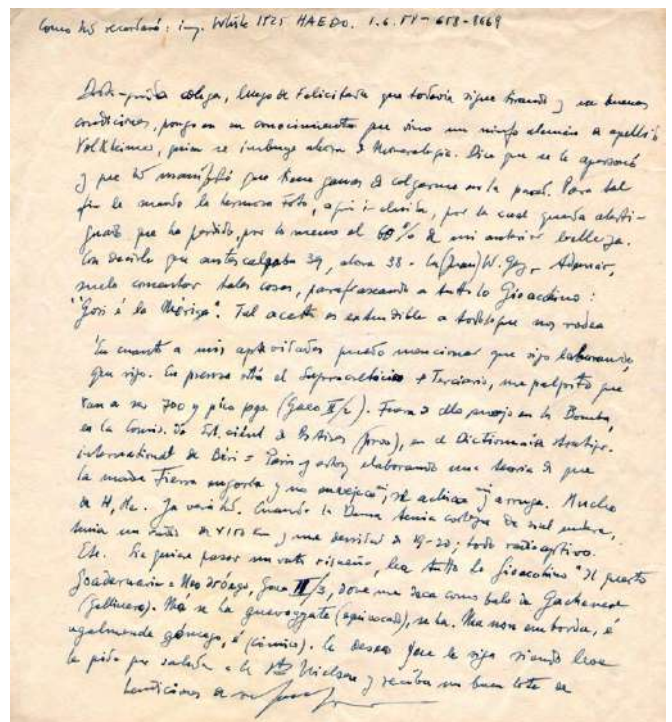 Como Ud recordará: ing. White 1525 HAEDO. 1.6. 658-8669
colega, luego de Felicitarla que todavía sigue tirando y en buenas
condiciones, pongo en su conocimiento que vino un ninfo alemán de apellido
Volkheimer, quien se imbuye ahora de Mineralogía. Dice que se le apersonó
y que Ud manifestó que tiene ganas de colgarme en la pared. Para tal
fin le mando la hermosa foto, aquí incluída, por la cual queda atesti-
guado que ha perdido, por lo menos el 60% de mi anterior belleza.
Con decirle que antes calzaba 39, ahora 38 - La (frau) W. Gez.
suele comentar tales cosas, parafraseando a Gioacchino:
"Gori é la Tal es extendible a todo lo que nos rodea
En cuanto a mis aptividades puedo mencionar que sigo laborando,
que sigo. En prensa está el Supracretácico + Terciario, me palpito que
van a ser 700 y pico pags (Gaea II/2). Fuera de ello en la Bomba,
en la Comis. de Est. de (foros), en el Dictionnaire stratigr.
international de Paris y estoy elaborando una teoría de que
la madre Tierra engorda y no envejece, se achica y arruga. Mucho
de H, He. Ya verá Ud. Cuando la Dama tenía corteza de sial entera,
tenía un radio de km y una densidad de 19-20; todo radioaptivo.
Etc. Si quiere pasar un rato risueño, lea Gioacchino "Il puerto
Gaea III/3, dove
(gallinero). Ma se ha (equivocado), se ha. Ma non emborda, é
é (cómico). Le deseo que le siga siendo leve
la vida por saludar a la Sta Nielsen y reciba un buen lote de
bendiciones de